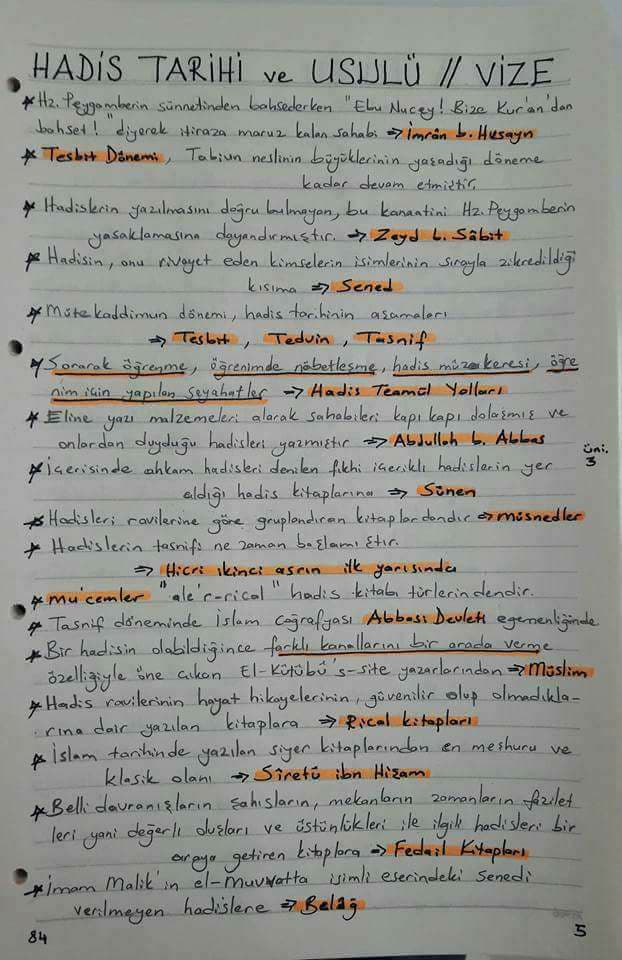 HADİS TARİHİ ve USULÜ // VİZE
* Hz. Peygamberin sünnetinden bahsederken "Ebu Nuceyd! Bize Kur'an'dan
bahset!" diyerek itiraza maruz kalan sahabi ⇒ İmrân b. Husayn
* Tesbit Dönemi, Tabiun neslinin büyüklerinin yaşadığı döneme
kadar devam etmiştir.
* Hadislerin yazılmasını doğru bulmayan, bu kanaatini Hz. Peygamberin
yasaklamasına dayandırmıştır. ⇒ Zeyd b. Sâbit
* Hadisin, onu rivayet eden kimselerin isimlerinin sırayla zikredildiği
kısıma ⇒ Sened
* Mütekaddimun dönemi, hadis tarihinin aşamaları
⇒ Tesbit, Tedvin, Tasnif
* Sorarak öğrenme, öğrenimde nöbetleşme, hadis müzakeresi, öğre
nim için yapılan seyahatler ⇒ Hadis Teamül Yolları
* Eline yazı malzemeleri alarak sahabileri kapı kapı dolaşmış ve
onlardan duyduğu hadisleri yazmıştır ⇒ Abdullah b. Abbas
üni.
3
* İçerisinde ahkam hadisleri denilen fıkhi içerikli hadislerin yer
aldığı hadis kitaplarına ⇒ Sünen
* Hadisleri ravilerine göre gruplandıran kitaplardandır ⇒ müsnedler
* Hadislerin tasnifi ne zaman başlamıştır.
⇒ Hicri ikinci asrın ilk yarısında
* Mu'cemler "ale'r-rical" hadis kitabı türlerindendir.
* Tasnif döneminde İslam coğrafyası Abbasi Devleti egemenliğinde
* Bir hadisin olabildiğince farklı kanallarını bir arada verme
özelliğiyle öne çıkan El-Kütübü's-site yazarlarından ⇒ Müslim
* Hadis ravilerinin hayat hikayelerinin, güvenilir olup olmadıkla-
rına dair yazılan kitaplara ⇒ Rical kitapları
* İslam tarihinde yazılan siyer kitaplarından en meşhuru ve
klasik olanı ⇒ Sîretü ibn Hişam
* Belli davranışların şahısların, mekanların zamanların fazilet
leri yani değerli oluşları ve üstünlükleri ile ilgili hadisleri bir
araya getiren kitaplara ⇒ Fedail Kitapları
* İmam Malik'in el-Muvvatta isimli eserindeki senedi
verilmeyen hadislere ⇒ Belâğ
84
5